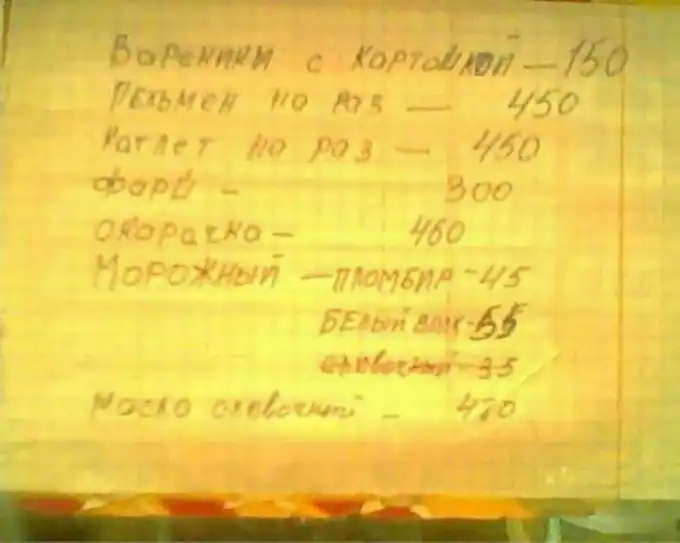 Вареники с картошкой — 150
Пельмен на раз — 450
Катлет на раз — 450
Фарш — 300
окорачка — 460
Морожный — пломбир - 45
Белый волк - 55
сливочный - 35
Масло сливочный —